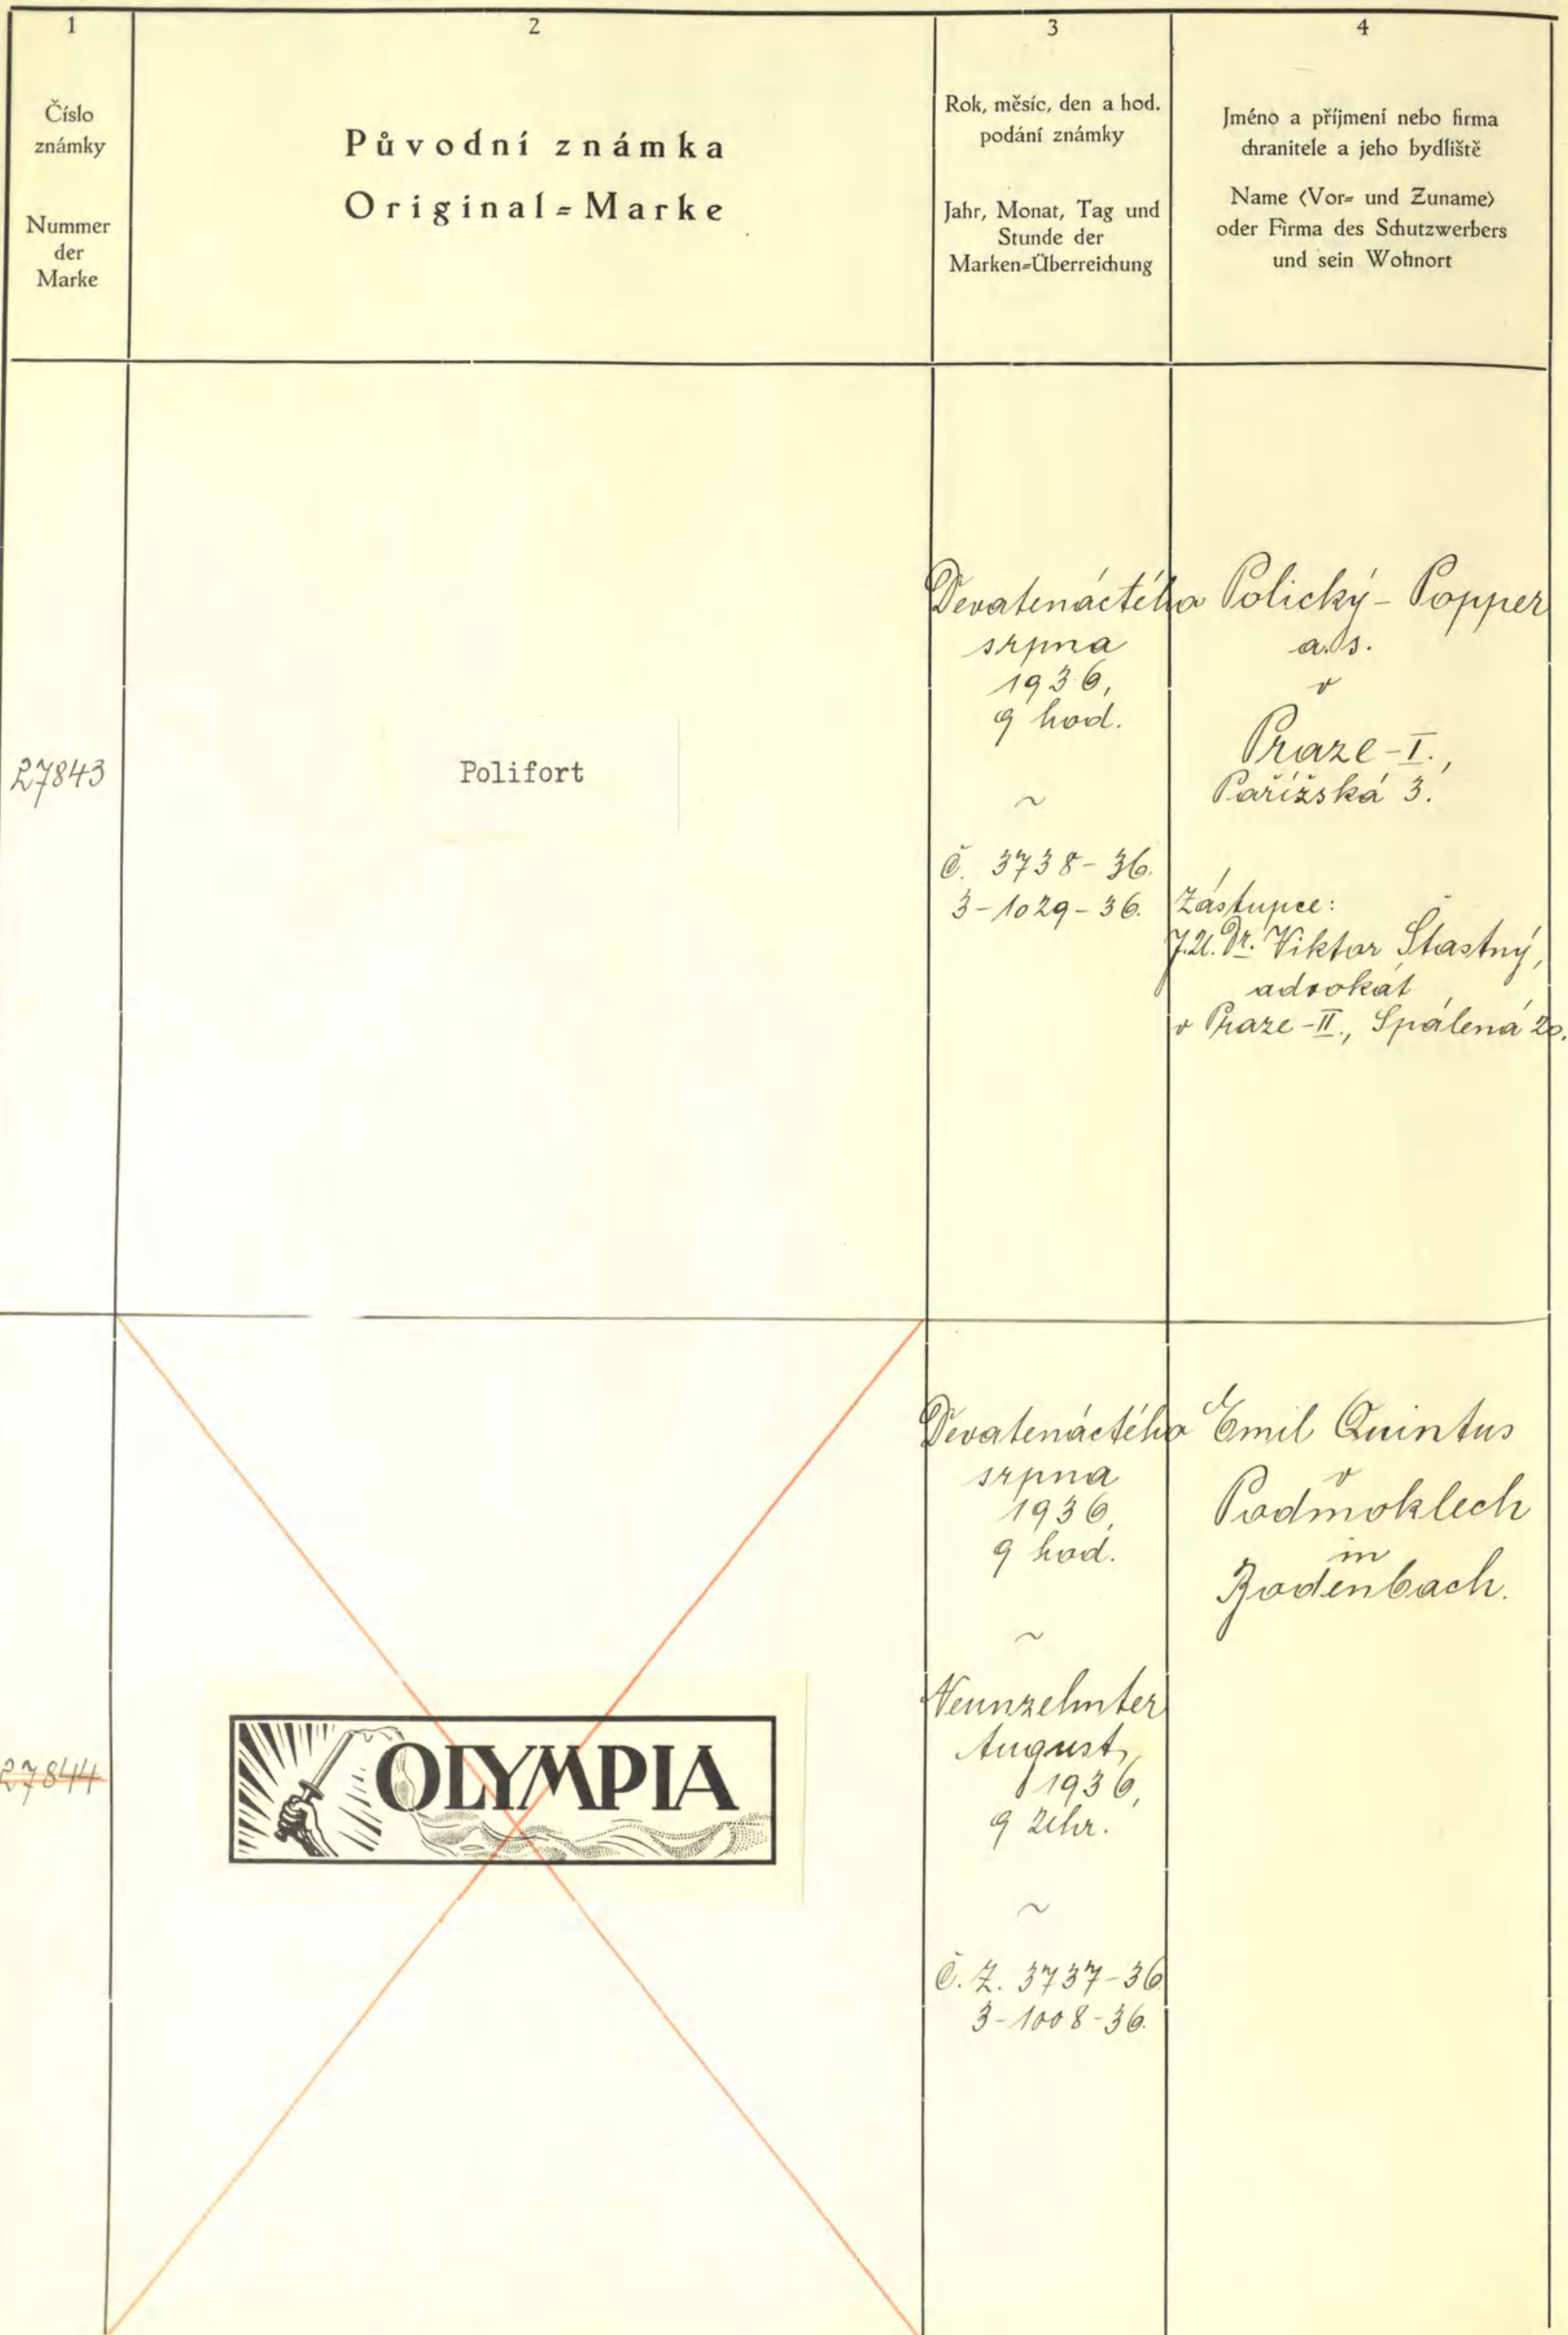 1
Číslo
známky
Nummer
der
Marke
2
Původní známka
Original-Marke
3
Rok, měsíc, den a hod.
podání známky
Jahr, Monat, Tag und
Stunde der
Marken-Überreichung
4
Jméno a příjmení nebo firma
chranitele a jeho bydliště
Name (Vor- und Zuname)
oder Firma des Schutzwerbers
und sein Wohnort
27843
Polifort
Devatenáctého
srpna
1936,
9 hod.
~
č. 3738-36.
3-1029-36.
Polický-Popper
a.s.
v
Praze-I.,
Pařížská 3.
Zástupce:
J.U.Dr. Viktor Šťastný,
advokát
v Praze-II., Spálená 20.
27844
OLYMPIA
Devatenáctého
srpna
1936,
9 hod.
~
Neunzehnter
August,
1936,
9 Uhr.
~
Č.Z. 3737-36
3-1008-36.
Emil Quintus
v
Podmoklech
in
Bodenbach.